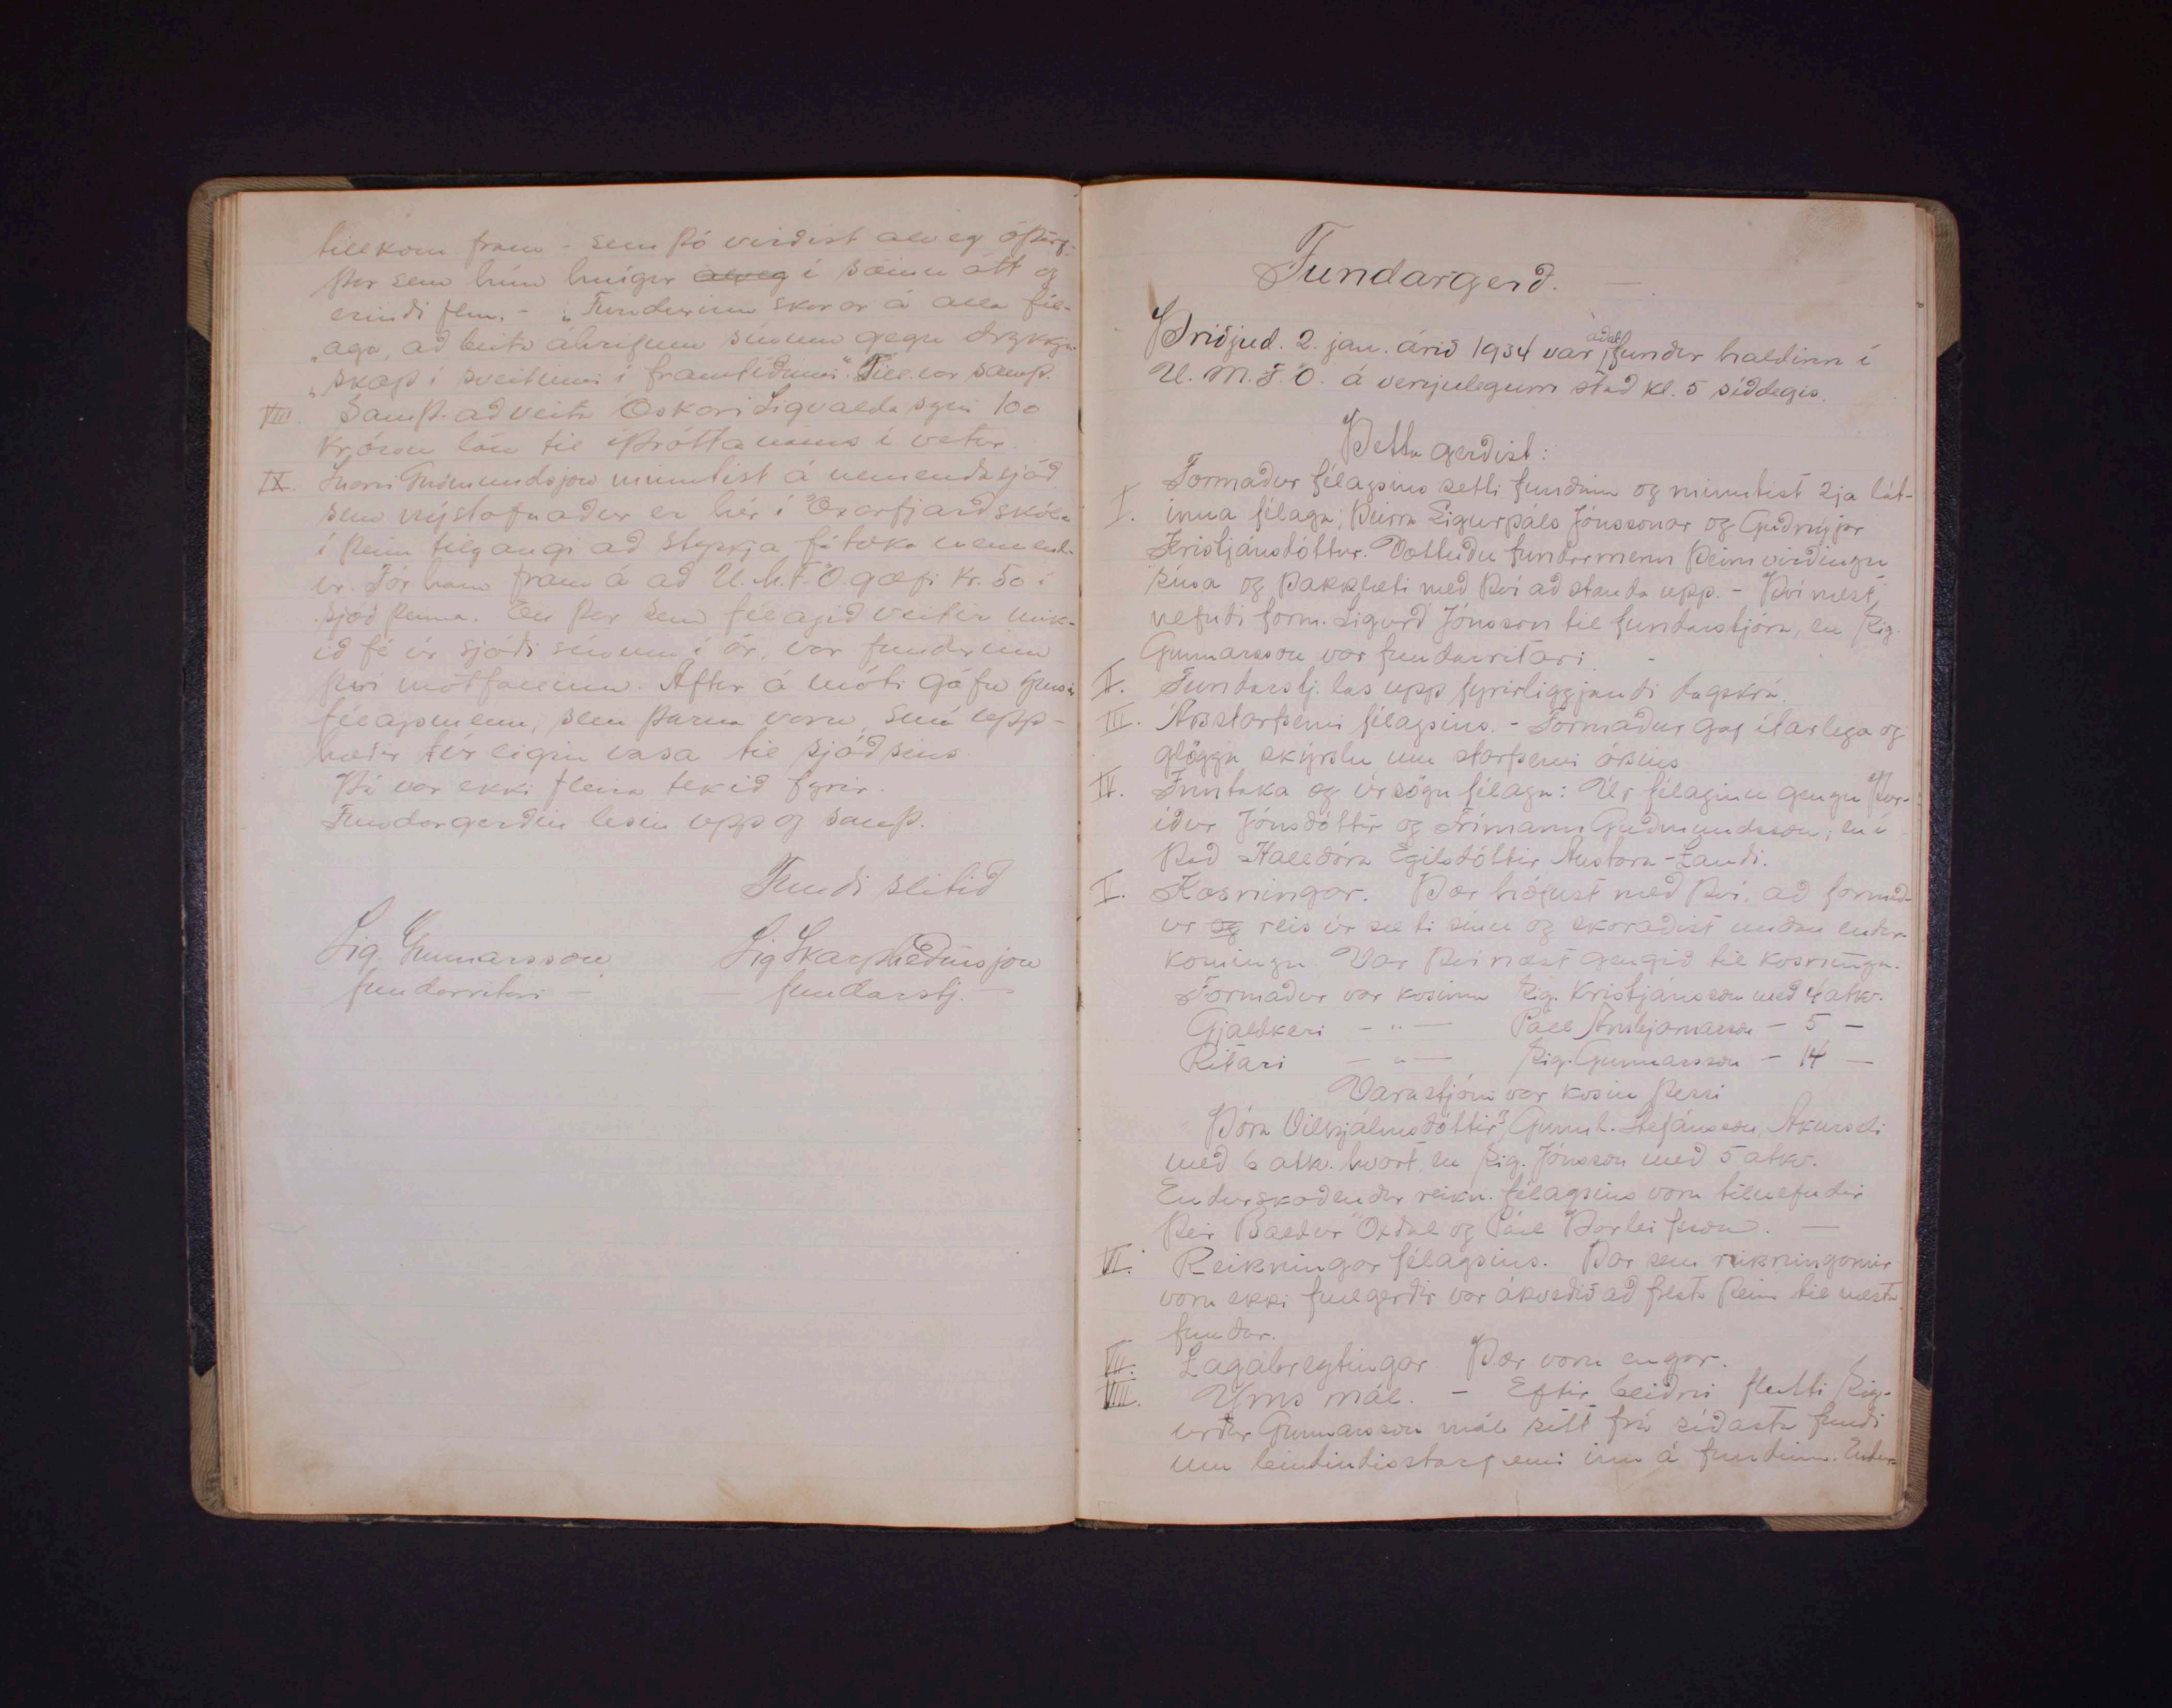 till kom fram - sem þó virðist alveg óþörf
þar sem hún hnígur alveg í sömu átt og
erindi flm. - „Fundurinn skorar á alla fél-
„aga, að beita áhrifum sínum gegn drykkju-
„skap í sveitinni í framtíðinni". Till. var samþ.
VIII. Samþ. að veita Óskari Sigvaldasyni 100
króna lán til íþróttanáms í vetur.
IX. Snorri Guðmundsson minntist á nemendasjóð
sem nýstofnaður er hér í Öxarfjarðskóla
í þeim tilgangi að styrkja fátæka nemend-
ur. Fór hann fram á að U.M.F.Ö. gæfi kr. 50 í
sjóð þenna. En þar sem félagið veitir mik-
ið fé úr sjóði sínum í ár, var fundurinn
því mótfallinn. Aftur á móti gáfu ýmsir
félagsmenn, sem þarna voru, smá upp-
hæðir úr eigin vasa til sjóðsins.
Þá var ekki fleira tekið fyrir.
Fundargerðin lesin upp og samþ.
Fundi slitið
Sig. Gunnarsson Sig Skarphéðinsson
fundarritari - - fundarstj. -
Fundargerð. -
Þriðjud. 2. jan. árið 1934 var aðalfundur haldinn í
U.M.F.Ö. á venjulegum stað kl. 5 síðdegis.
Þetta gerðist:
I. Formaður félagsins setti fundinn og minntist 2ja lát-
inna félaga, þeirra Sigurpáls Jónssonar og Guðnýjar
Kristjánsdóttur. Vottuðu fundarmenn þeim virðingu
sína og þakklæti með því að standa upp. - Því næst
nefndi form. Sigurð Jónsson til fundarstjóra, en Sig.
Gunnarsson var fundarritari. -
II. Fundarstj. las upp fyrirliggjandi dagskrá.
III. Ársstarfsemi félagsins. - Formaður gaf ítarlega og
glögga skýrslu um starfsemi ársins
IV. Inntaka og úrsögn félaga: Úr félaginu gengu Þur-
íður Jónsdóttir og Frímann Guðmundsson, en í
það Halldóra Egilsdóttir Austara-Landi.
V. Kosningar. Þær hófust með því, að formað-
ur og reis úr sæti sínu og skoraðist undan endur-
kosningu. Var því næst gengið til kosninga.
Formaður var kosinn Sig. Kristjánsson með 4 atkv.
Gjaldkeri - " - Páll Arnbjarnarson - 5 -
Ritari - " - Sig. Gunnarsson - 14 -
Varastjórn var kosin þessi
Þóra Vilhjálmsdóttir, Gunnl. Stefánsson, Akurseli
með 6 atkv. hvort, en Sig. Jónsson með 5 atkv.
Endurskoðendur reikn. félagsins voru tilnefndir
þeir Baldur Öxdal og Páll Þorleifsson. -
VI. Reikningar félagsins. Þar sem reikningarnir
voru ekki fullgerðir var ákveðið að fresta þeim til næsta
fundar.
VII. Lagabreytingar. Þær voru engar.
VIII. Yms mál. - Eftir beiðni flutti Sig-
urður Gunnarsson mál sitt frá síðasta fundi
um bindindisstarfsemi inn á fundinn. Endur-